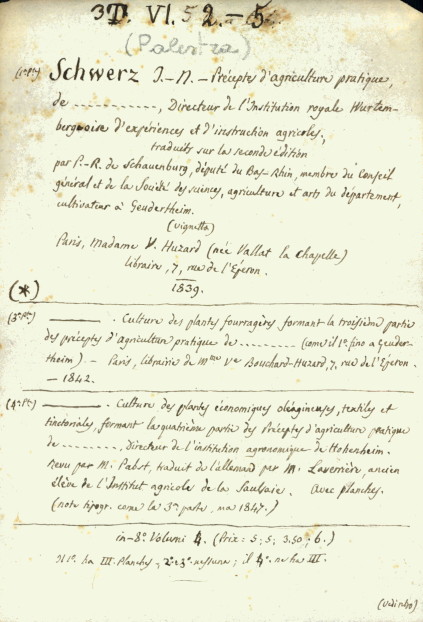 3D. VI. 5 2.-5
(Palestra)
(1ª Pte) Schwerz J.-N. - Préceptes d'agriculture pratique,
de ----------, Directeur de l'Institution royale Wurtem-
bergeoise d'expériences et d'instruction agricoles,
traduits sur la seconde édition
par P.-R. de Schauenburg, député du Bas-Rhin, membre du Conseil
général et de la Société des sciences, agriculture et arts du département,
cultivateur à Geudertheim.
(vignetta)
Paris, Madame V. Huzard (née Vallat la chapelle)
libraire, 7, rue de l'Éperon.
1839.
(*)
(3ª Pte) ——— . Culture des plantes fourragères, formant la troisième partie
des préceptes d'agriculture pratique de -------- (come il 1º fino a Geuder-
theim) - Paris, librairie de Mme Ve Bouchard-Huzard, 7, rue de l'Éperon.
- 1842.
(4ª Pte) ——— . Culture des plantes économiques oléagineuses, textiles et
tinctoriales, formant la quatrième partie des Préceptes d'agriculture pratique
de --------, Directeur de l'institution agronomique de Hohenheim.
Revu par M. Pabst, traduit de l'allemand par M. Laverrière, ancien
élève de l'Institut agricole de la Saulsaie. Avec planches.
(note tipogr. come la 3ª parte, ma 1847.)
in-8º Volumi 4. (Prix = 5; 5; 3.50; 6.)
Il 1º ha III. Planches, 2º e 3º nessuna; il 4º ne ha III.
(vedi retro)